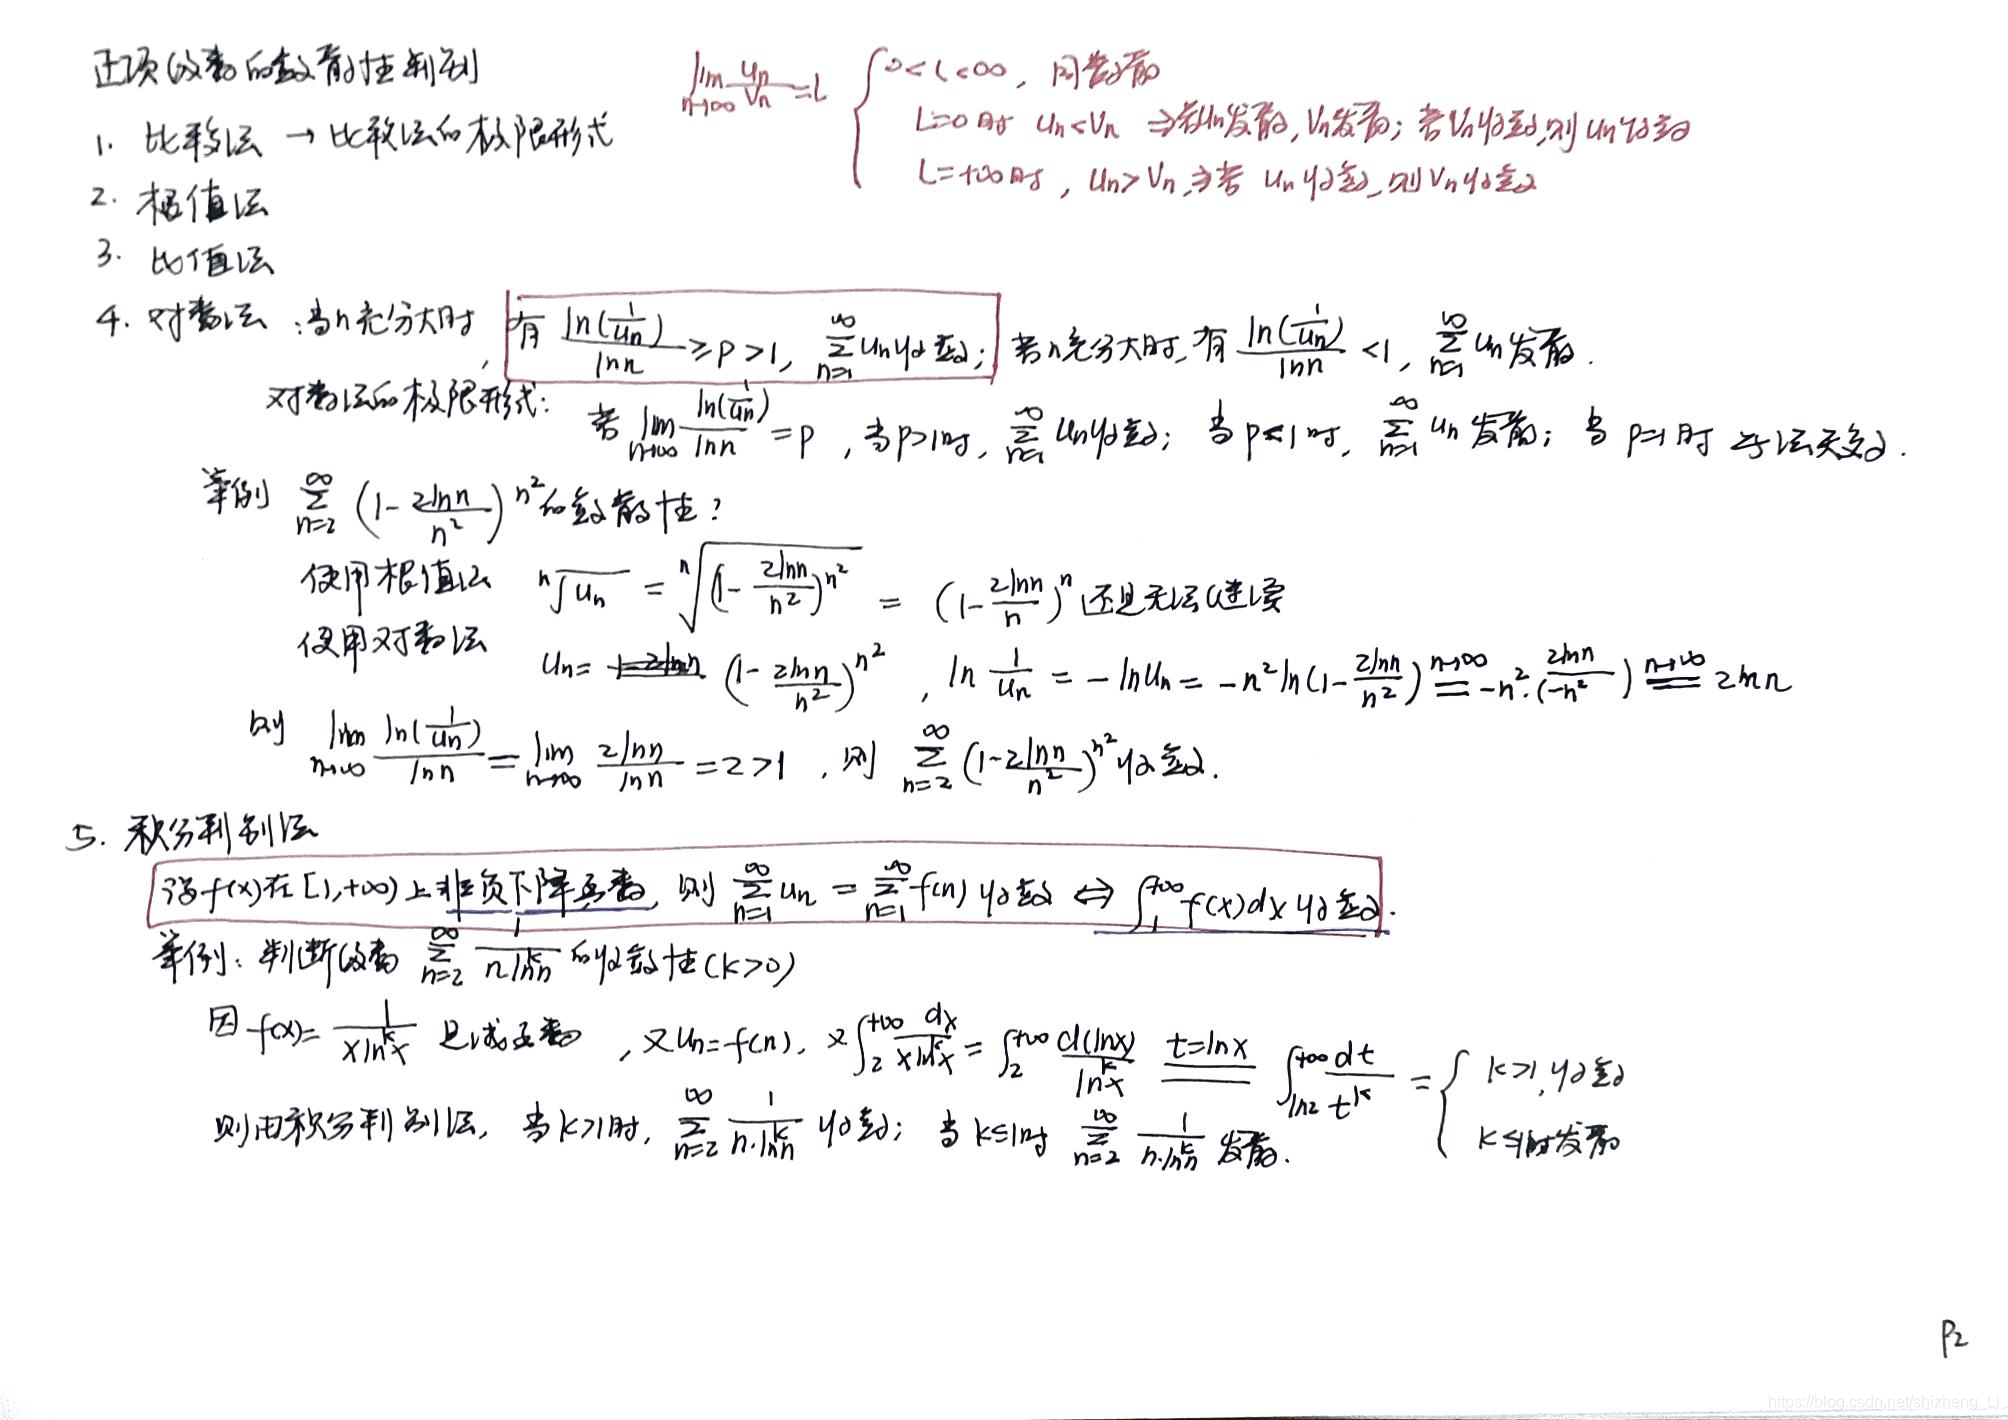 正项级数的敛散性判别
lim n→∞ un/vn = L { 0<L<∞, 同敛散
L=0时 un<vn ⇒若un发散, vn发散; 若vn收敛,则un收敛
L=+∞时, un>vn,⇒若 un收敛,则vn收敛
1. 比较法 → 比较法的极限形式
2. 根值法
3. 比值法
4. 对数法:当n充分大时, 有 ln(1/un)/lnn ≥p>1, ∑(n=1→∞) un收敛; 若n充分大时,有 ln(1/un)/lnn <1, ∑(n=1→∞) un发散.
对数法的极限形式: 若 lim n→∞ ln(1/un)/lnn = p , 当p>1时, ∑(n=1→∞) un收敛; 当p<1时, ∑(n=1→∞) un发散; 当 p=1时 此法失效.
举例 ∑(n=2→∞) (1-2lnn/n²)^n² 的敛散性?
使用根值法 ⁿ√un = ⁿ√(1-2lnn/n²)^n² = (1-2lnn/n)^n 还是无法
使用对数法 un= (1-2lnn/n²)^n² , ln 1/un = -lnun = -n²ln(1-2lnn/n²) =(n→∞) -n²·(2lnn/-n²) =(n→∞) 2lnn
则 lim n→∞ ln(1/un)/lnn = lim n→∞ 2lnn/lnn =2>1 , 则 ∑(n=2→∞) (1-2lnn/n²)^n² 收敛.
5. 积分判别法
设f(x)在[1,+∞)上非负下降函数, 则 ∑(n=1→∞) un = ∑(n=1→∞) f(n) 收敛 ⇔ ∫(1→+∞) f(x)dx 收敛.
举例: 判断级数 ∑(n=2→∞) 1/(n ln^k n) 的收敛性(k>0)
因 f(x)= 1/(x ln^k x) 是减函数 , 又un=f(n), 又∫(2→+∞) dx/(x ln^k x) = ∫(2→+∞) d(lnx)/(ln^k x) =(t=lnx) ∫(ln2→+∞) dt/t^k = { k>1,收敛
k≤1时发散
则由积分判别法, 当k>1时, ∑(n=2→∞) 1/(n·ln^k n) 收敛; 当k≤1时 ∑(n=2→∞) 1/(n·ln^k n) 发散.
P2
https://blog.csdn.net/shizheng_Li